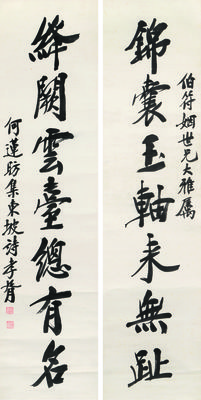 伯符姻世兄大雅屬
錦囊玉軸来無趾
絳闕雲臺總有名
何蓮舫集東坡詩孝胥